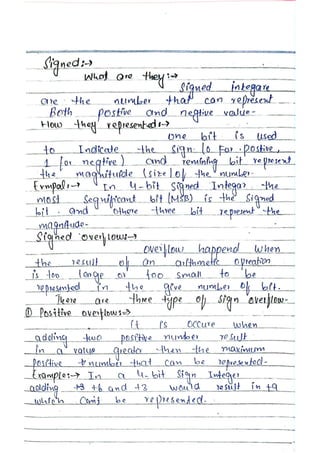 Signed:→
What are they:→
Signed integare
are the number that can represent
Both postive and negtive value-
How they represented:→
one bit is used
to Indicate the sign (0 For postive,
1 for negtive) and remining bit represent
the magnituide (size) of the number.
Exmpal:→ In 4-bit Signed Integar the
most Segnificant bit (MSB) is the Signed
bit. and othere three bit represent the
magnitude-
Signed overflows→
overflow happend when
the result of an arithmetic opration
is too large or too small to be
represented in the give number of bit.
There are three type of sign overflow-
① Positive overflows:→
it is occure when
adding two positive number result
in a value greater then the maximum
Positive number that can be represented-
Example:→ In a 4-bit Sign Integer
adding +6 and +3 would result in +9
which can't be represented.